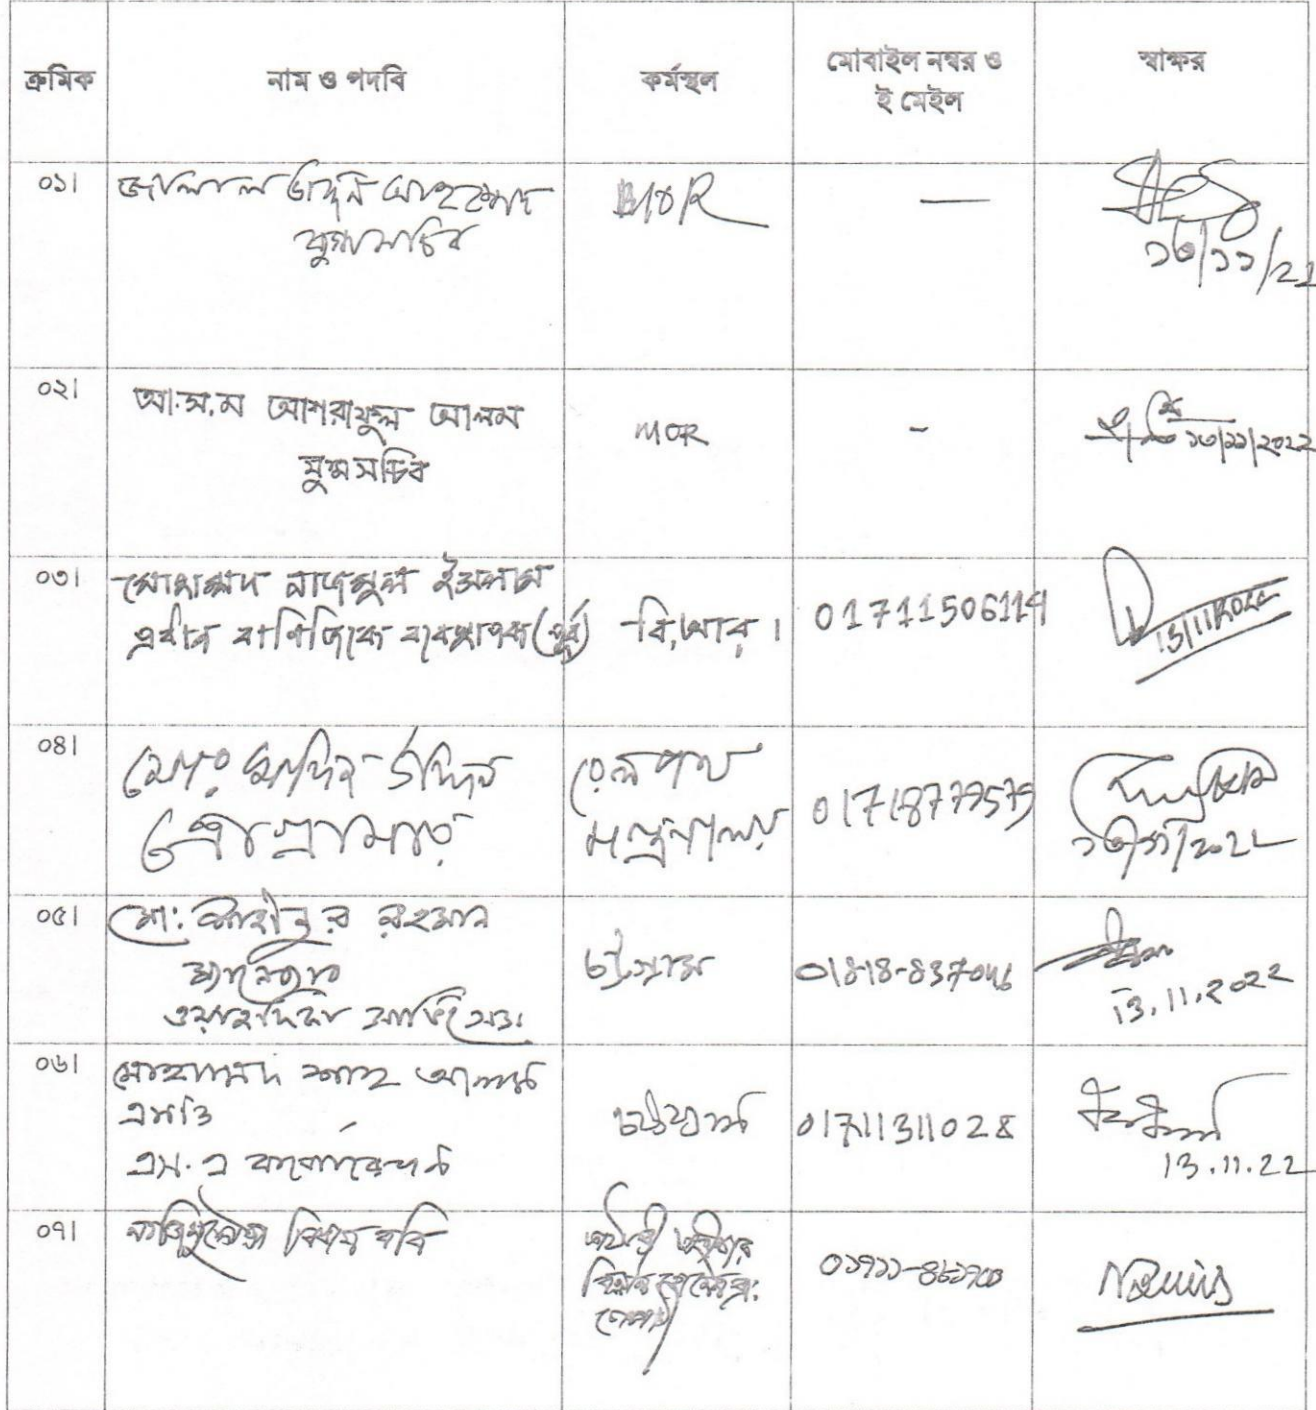 ক্রমিক
নাম ও পদবি
কর্মস্থল
মোবাইল নম্বর ও
ই মেইল
স্বাক্ষর
০১।
জালাল উদ্দিন আহম্মেদ
যুগ্মসচিব
MOR
—
১৩/১১/২২
০২।
আ.স.ম আশরাফুল আলম
যুগ্মসচিব
MOR
-
১৩/১১/২০২২
০৩।
মোহাম্মদ নাজমুল ইসলাম
প্রধান বাণিজ্যিক ব্যবস্থাপক (পূর্ব)
বি,আর,।
01711506114
13/11/2022
০৪।
মোঃ উদ্দিন
প্রোগ্রামার
রেলপথ
মন্ত্রণালয়
01718779579
১৩/১১/২০২২
০৫।
মো: রহমান
ম্যানেজার
চট্টগ্রাম
01818-837046
13.11.2022
০৬।
মোহাম্মদ শাহ আলম
এমডি
এস.এ কর্পোরেশন
চট্টগ্রাম
01711311028
13.11.22
০৭।